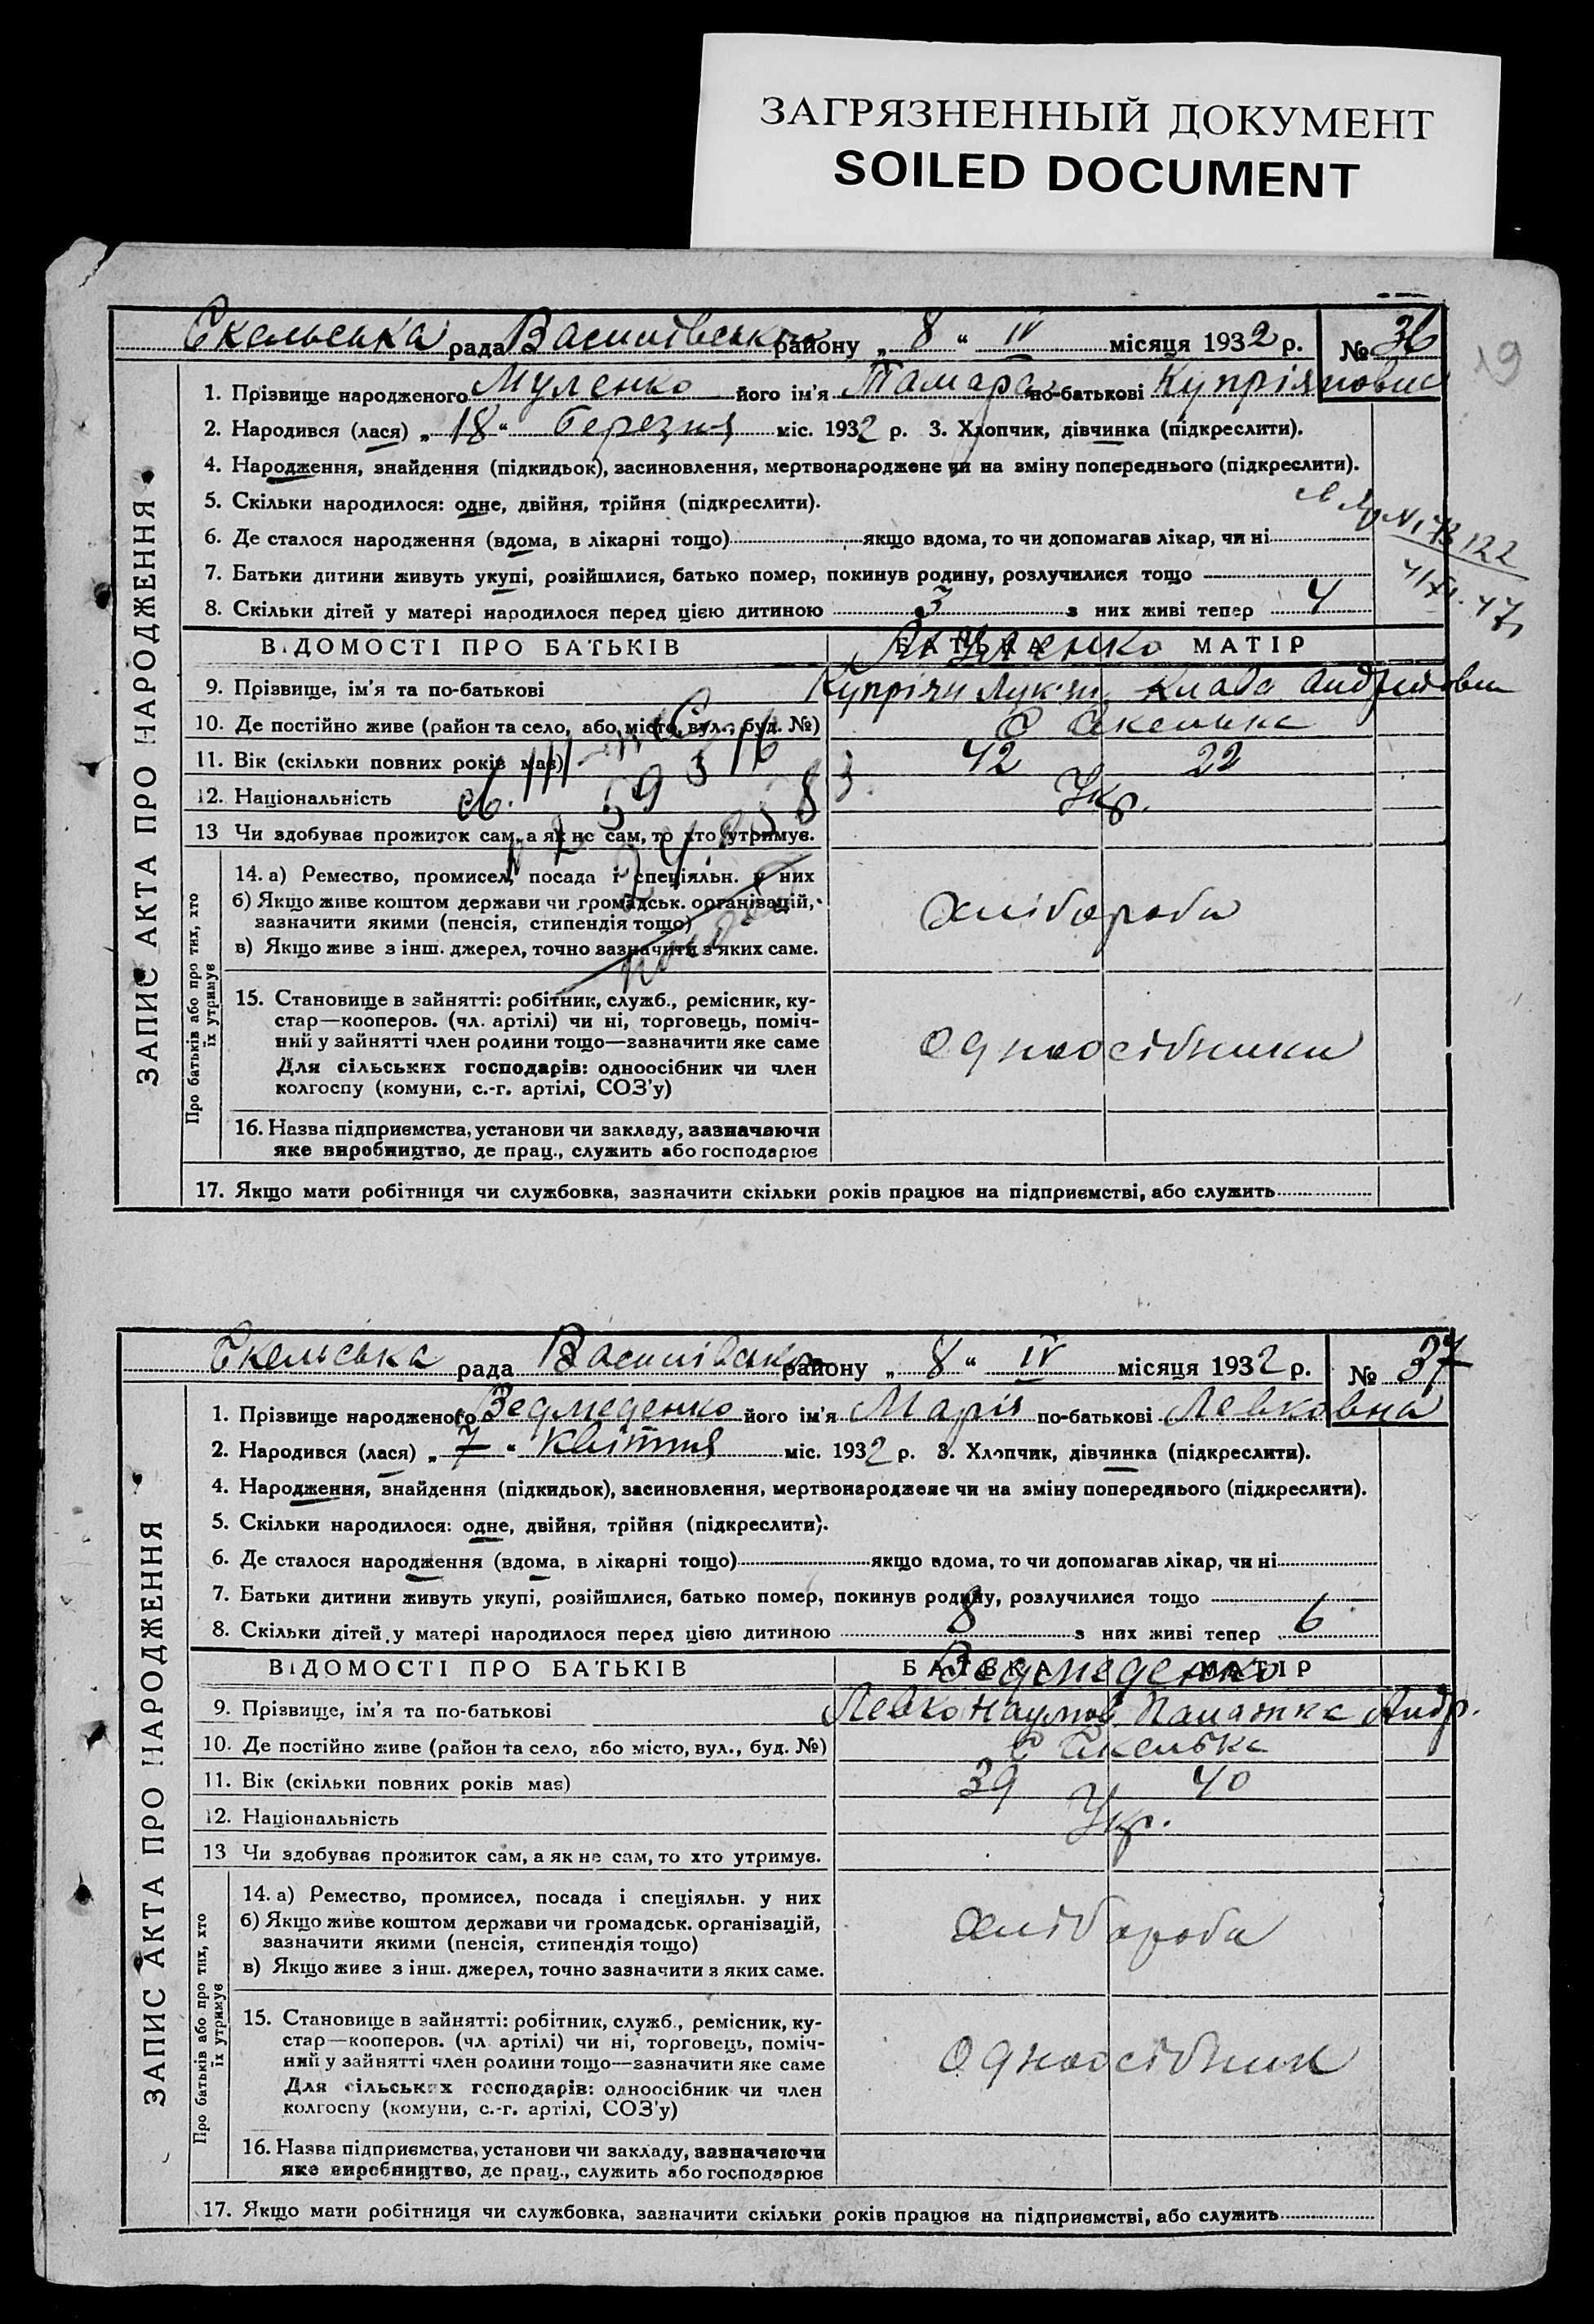 ЗАГРЯЗНЕННЫЙ ДОКУМЕНТ
SOILED DOCUMENT
19
ЗАПИС АКТА ПРО НАРОДЖЕННЯ
Скельська рада Василівська району „ 8 “ IV місяця 1932 р. № 36
1. Прізвище народженого Муленко його ім'я Тамара по-батькові Купріяновна
2. Народився (лася) „ 18 “ березня міс. 1932 р. 3. Хлопчик, дівчинка (підкреслити).
4. Народження, знайдення (підкидьок), засиновлення, мертвонароджене чи на зміну попереднього (підкреслити).
5. Скільки народилося: одне, двійня, трійня (підкреслити).
6. Де сталося народження (вдома, в лікарні тощо) якщо вдома, то чи допомагав лікар, чи ні
7. Батьки дитини живуть укупі, розійшлися, батько помер, покинув родину, розлучилися тощо
8. Скільки дітей у матері народилося перед цією дитиною 3 з них живі тепер 4
ВІДОМОСТІ ПРО БАТЬКІВ БАТЬКА МАТІР
Муленко
9. Прізвище, ім'я та по-батькові Купріян Лук'ян. Клава Андріївна
10. Де постійно живе (район та село, або місто, вул., буд. №) С Скелька
11. Вік (скільки повних років має) 42 22
12. Національність Укр.
13 Чи здобував прожиток сам, а як не сам, то хто утримує.
Про батьків або про тих, хто їх утримує
14. а) Ремество, промисел, посада і спеціяльн. у них
б) Якщо живе коштом держави чи громадськ. організацій,
зазначити якими (пенсія, стипендія тощо)
в) Якщо живе з інш. джерел, точно зазначити з яких саме.
хлібороби
15. Становище в зайнятті: робітник, служб., ремісник, ку-
стар—кооперов. (чл. артілі) чи ні, торговець, поміч-
ний у зайнятті член родини тощо—зазначити яке саме
Для сільських господарів: одноосібник чи член
колгоспу (комуни, с.-г. артілі, СОЗ'у)
одноосібники
16. Назва підприємства, установи чи закладу, зазначаючи
яке виробництво, де прац., служить або господарює
17. Якщо мати робітниця чи службовка, зазначити скільки років працює на підприємстві, або служить
ЗАПИС АКТА ПРО НАРОДЖЕННЯ
Скельська рада Василівська району „ 8 “ IV місяця 1932 р. № 37
1. Прізвище народженого Ведмеденко його ім'я Марія по-батькові Левковна
2. Народився (лася) „ 7 “ квітня міс. 1932 р. 3. Хлопчик, дівчинка (підкреслити).
4. Народження, знайдення (підкидьок), засиновлення, мертвонароджене чи на зміну попереднього (підкреслити).
5. Скільки народилося: одне, двійня, трійня (підкреслити).
6. Де сталося народження (вдома, в лікарні тощо) якщо вдома, то чи допомагав лікар, чи ні
7. Батьки дитини живуть укупі, розійшлися, батько помер, покинув родину, розлучилися тощо
8. Скільки дітей у матері народилося перед цією дитиною 8 з них живі тепер 6
ВІДОМОСТІ ПРО БАТЬКІВ БАТЬКА МАТІР
Ведмеденко
9. Прізвище, ім'я та по-батькові Левко Наумов. Палажка Андр.
10. Де постійно живе (район та село, або місто, вул., буд. №) С Скелька
11. Вік (скільки повних років має) 39 40
12. Національність Укр.
13 Чи здобував прожиток сам, а як не сам, то хто утримує.
Про батьків або про тих, хто їх утримує
14. а) Ремество, промисел, посада і спеціяльн. у них
б) Якщо живе коштом держави чи громадськ. організацій,
зазначити якими (пенсія, стипендія тощо)
в) Якщо живе з інш. джерел, точно зазначити з яких саме.
хлібороби
15. Становище в зайнятті: робітник, служб., ремісник, ку-
стар—кооперов. (чл. артілі) чи ні, торговець, поміч-
ний у зайнятті член родини тощо—зазначити яке саме
Для сільських господарів: одноосібник чи член
колгоспу (комуни, с.-г. артілі, СОЗ'у)
одноосібник
16. Назва підприємства, установи чи закладу, зазначаючи
яке виробництво, де прац., служить або господарює
17. Якщо мати робітниця чи службовка, зазначити скільки років працює на підприємстві, або служить